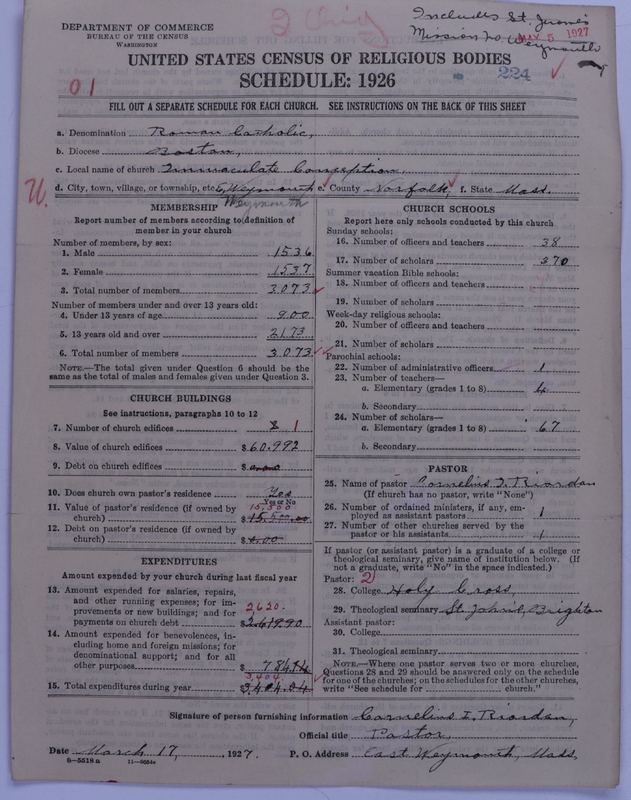 Includes St. Jerome's
Mission No Weymouth
MAY 5 1927
DEPARTMENT OF COMMERCE
BUREAU OF THE CENSUS
WASHINGTON
UNITED STATES CENSUS OF RELIGIOUS BODIES
SCHEDULE: 1926
224
01
FILL OUT A SEPARATE SCHEDULE FOR EACH CHURCH. SEE INSTRUCTIONS ON THE BACK OF THIS SHEET
a. Denomination Roman Catholic,
b. Diocese Boston,
c. Local name of church Immaculate Conception,
d. City, town, village, or township, etc. E. Weymouth e. County Norfolk f. State Mass.
Weymouth
MEMBERSHIP
Report number of members according to definition of
member in your church
Number of members, by sex:
1. Male 1536
2. Female 1537
3. Total number of members 3073
Number of members under and over 13 years old:
4. Under 13 years of age 900
5. 13 years old and over 2173
6. Total number of members 3073
NOTE.—The total given under Question 6 should be the
same as the total of males and females given under Question 3.
CHURCH BUILDINGS
See instructions, paragraphs 10 to 12
7. Number of church edifices 1
8. Value of church edifices $60,992
9. Debt on church edifices $0.00
10. Does church own pastor's residence Yes
Yes or No
11. Value of pastor's residence (if owned by 15,500
church) $15,500.00
12. Debt on pastor's residence (if owned by
church) $0.00
EXPENDITURES
Amount expended by your church during last fiscal year
13. Amount expended for salaries, repairs,
and other running expenses; for im-
provements or new buildings; and for 2,620.
payments on church debt $2,619.90
14. Amount expended for benevolences, in-
cluding home and foreign missions; for
denominational support; and for all
other purposes $784.14
3,404.
15. Total expenditures during year $3,404.04
CHURCH SCHOOLS
Report here only schools conducted by this church
Sunday schools:
16. Number of officers and teachers 38
17. Number of scholars 370
Summer vacation Bible schools:
18. Number of officers and teachers
19. Number of scholars
Week-day religious schools:
20. Number of officers and teachers
21. Number of scholars
Parochial schools:
22. Number of administrative officers 1
23. Number of teachers—
a. Elementary (grades 1 to 8) 4
b. Secondary
24. Number of scholars—
a. Elementary (grades 1 to 8) 67
b. Secondary
PASTOR
25. Name of pastor Cornelius I. Riordan
(If church has no pastor, write "None")
26. Number of ordained ministers, if any, em-
ployed as assistant pastors 1
27. Number of other churches served by the
pastor or his assistants 1
If pastor (or assistant pastor) is a graduate of a college or
theological seminary, give name of institution below. (If
not a graduate, write "No" in the space indicated.)
Pastor: 2
28. College Holy Cross,
29. Theological seminary St. John's, Brighton
Assistant pastor:
30. College
31. Theological seminary
NOTE.—Where one pastor serves two or more churches,
Questions 28 and 29 should be answered only on the schedule
for one of the churches; on the schedules for the other churches,
write "See schedule for church."
Signature of person furnishing information Cornelius I. Riordan,
Official title Pastor,
Date March 17, 1927. P. O. Address East Weymouth, Mass,
8—5518a 11—9664a